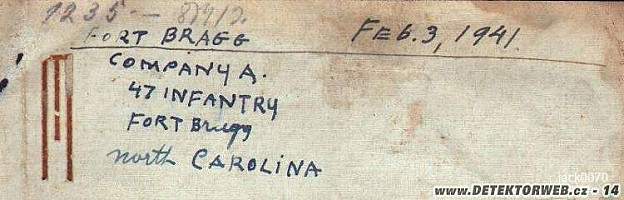 1235 -
FORT BRAGG FEB. 3, 1941
COMPANY A.
47 INFANTRY
FORT Bragg
north CAROLINA
jack0070
www.DETEKTORWEB.cz - 14